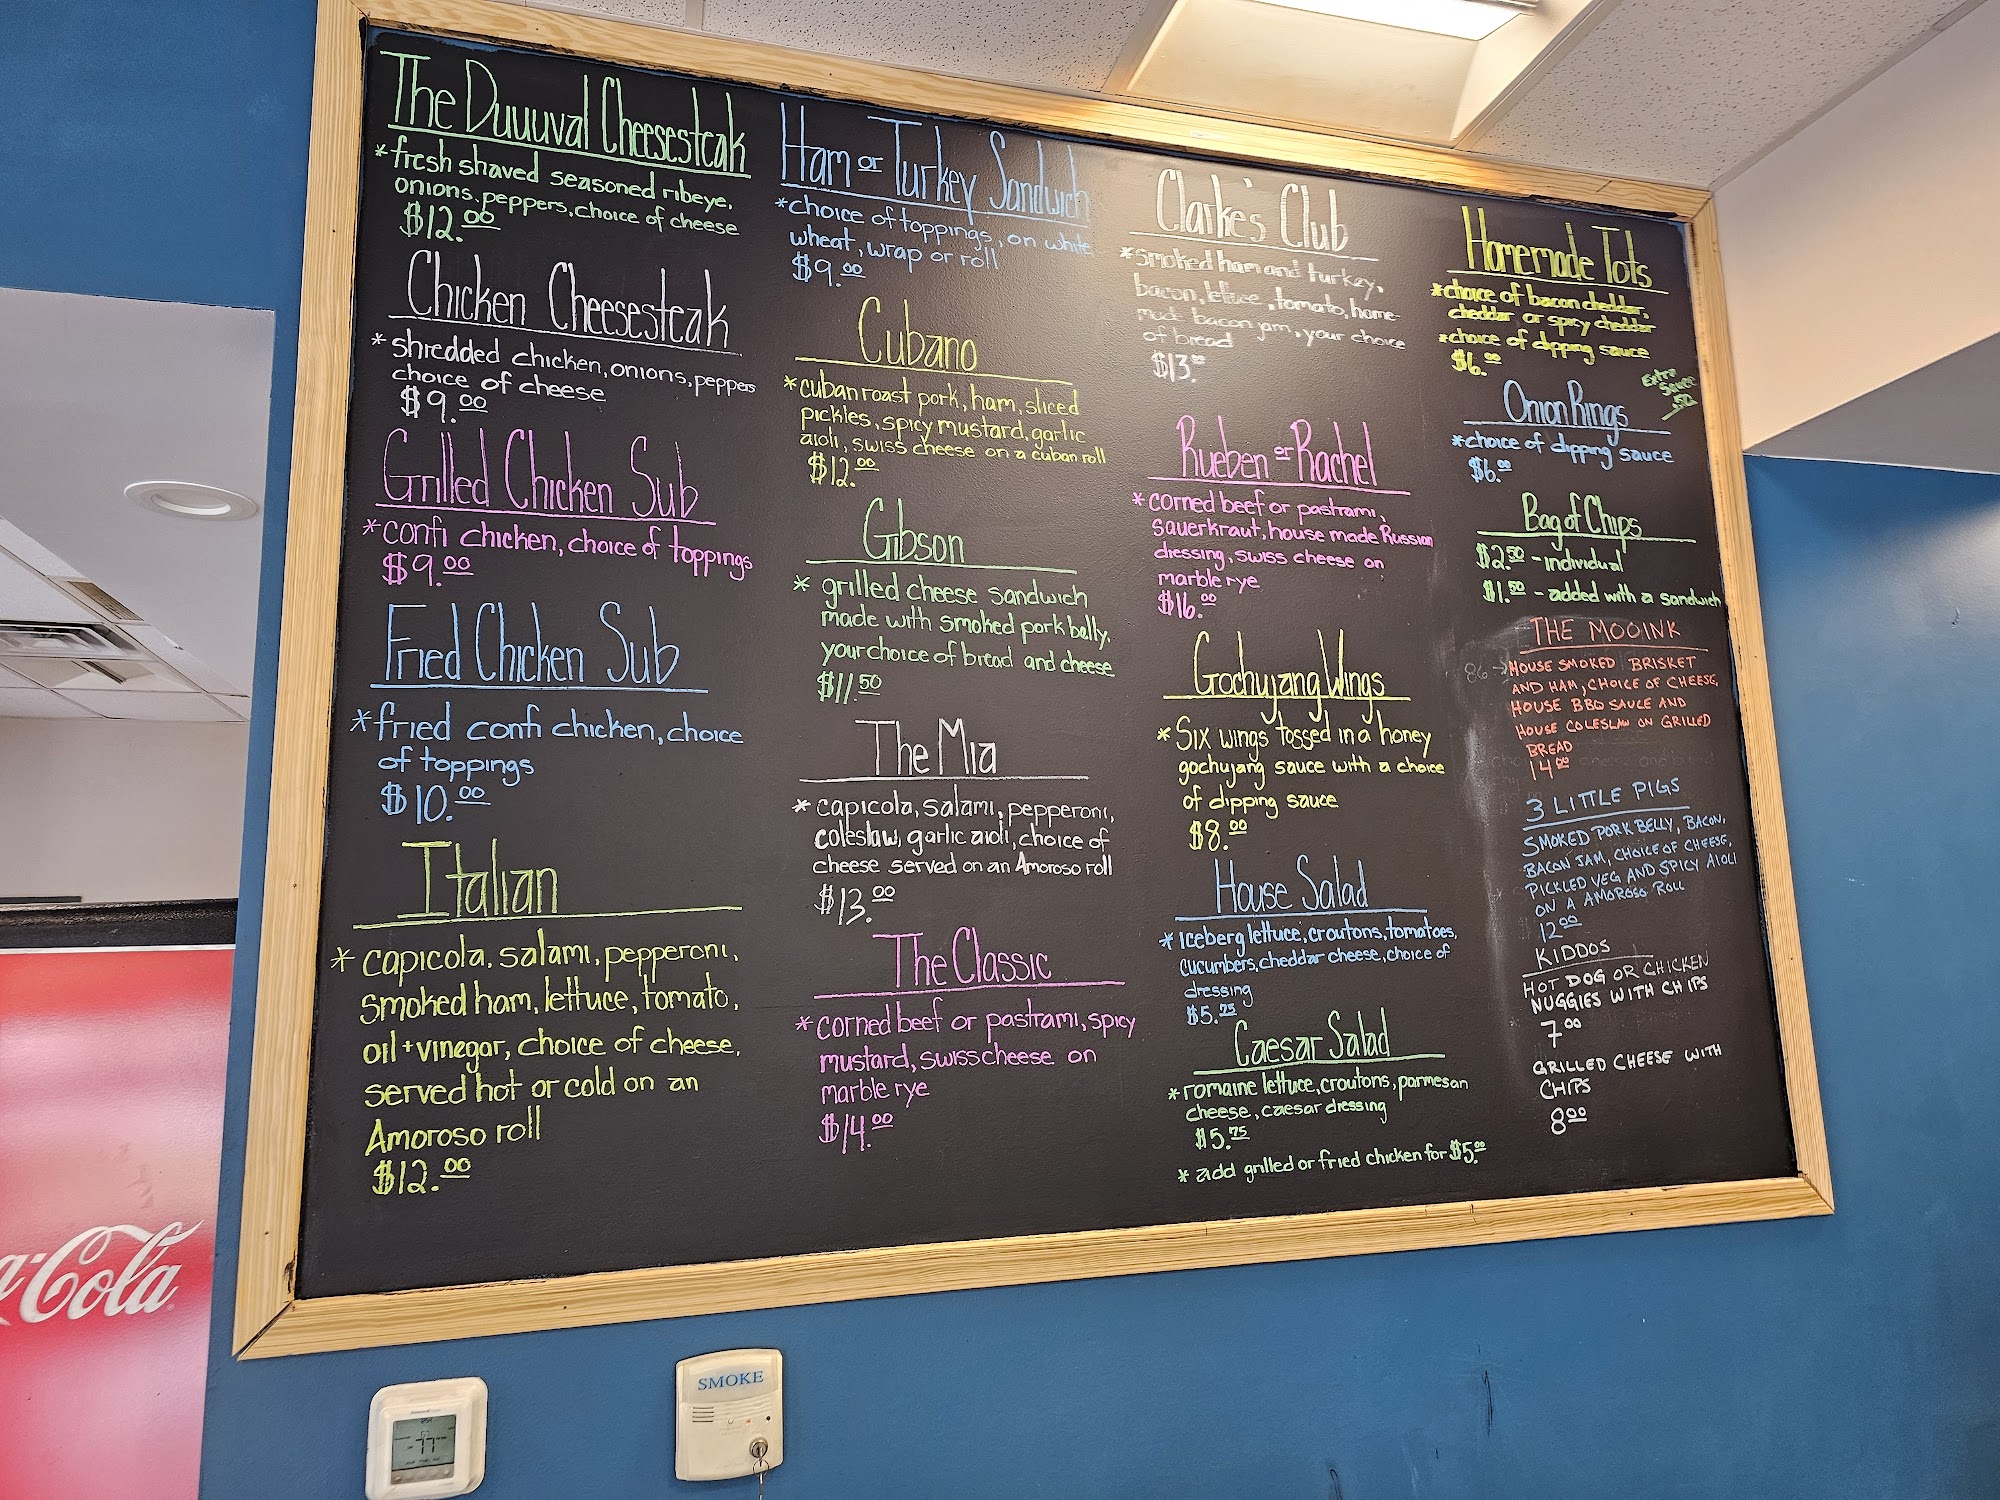 The Duuuval Cheesesteak
*fresh shaved seasoned ribeye,
onions, peppers, choice of cheese
$12.00
Chicken Cheesesteak
*shredded chicken, onions, peppers
choice of cheese
$9.00
Grilled Chicken Sub
*confi chicken, choice of toppings
$9.00
Fried Chicken Sub
*fried confi chicken, choice
of toppings
$10.00
Italian
*capicola, salami, pepperoni,
smoked ham, lettuce, tomato,
oil + vinegar, choice of cheese,
served hot or cold on an
Amoroso roll
$12.00
Ham or Turkey Sandwich
*choice of toppings, on white
wheat, wrap or roll
$9.00
Cubano
*cuban roast pork, ham, sliced
pickles, spicy mustard, garlic
aioli, swiss cheese on a cuban roll
$12.00
Gibson
* grilled cheese sandwich
made with smoked pork belly,
your choice of bread and cheese
$11.50
The Mia
*capicola, salami, pepperoni,
coleslaw, garlic aioli, choice of
cheese served on an Amoroso roll
$13.00
The Classic
*corned beef or pastrami, spicy
mustard, swiss cheese on
marble rye
$14.00
Clarke's Club
*smoked ham and turkey,
bacon, lettuce, tomato, home-
made bacon jam, your choice
of bread
$13.00
Rueben or Rachel
*corned beef or pastrami,
sauerkraut, house made Russian
dressing, swiss cheese on
marble rye
$16.00
Gochujang Wings
*Six wings tossed in a honey
gochujang sauce with a choice
of dipping sauce
$8.00
House Salad
*iceberg lettuce, croutons, tomatoes,
cucumbers, cheddar cheese, choice of
dressing
$5.75
Caesar Salad
*romaine lettuce, croutons, parmesan
cheese, caesar dressing
$5.75
* add grilled or fried chicken for $5.00
Homemade Tots
*choice of bacon cheddar,
cheddar or spicy cheddar
*choice of dipping sauce
$6.00
Extra
Sauce
.50
Onion Rings
*choice of dipping sauce
$6.00
Bag of Chips
$2.50 - individual
$1.50 - added with a sandwich
THE MOOINK
86 → HOUSE SMOKED BRISKET
AND HAM, CHOICE OF CHEESE,
HOUSE BBQ SAUCE AND
HOUSE COLESLAW ON GRILLED
BREAD
14.00
3 LITTLE PIGS
SMOKED PORK BELLY, BACON,
BACON JAM, CHOICE OF CHEESE,
PICKLED VEG AND SPICY AIOLI
ON A AMOROSO ROLL
12.00
KIDDOS
HOT DOG OR CHICKEN
NUGGIES WITH CHIPS
7.00
GRILLED CHEESE WITH
CHIPS
8.00
Coca-Cola
SMOKE
77